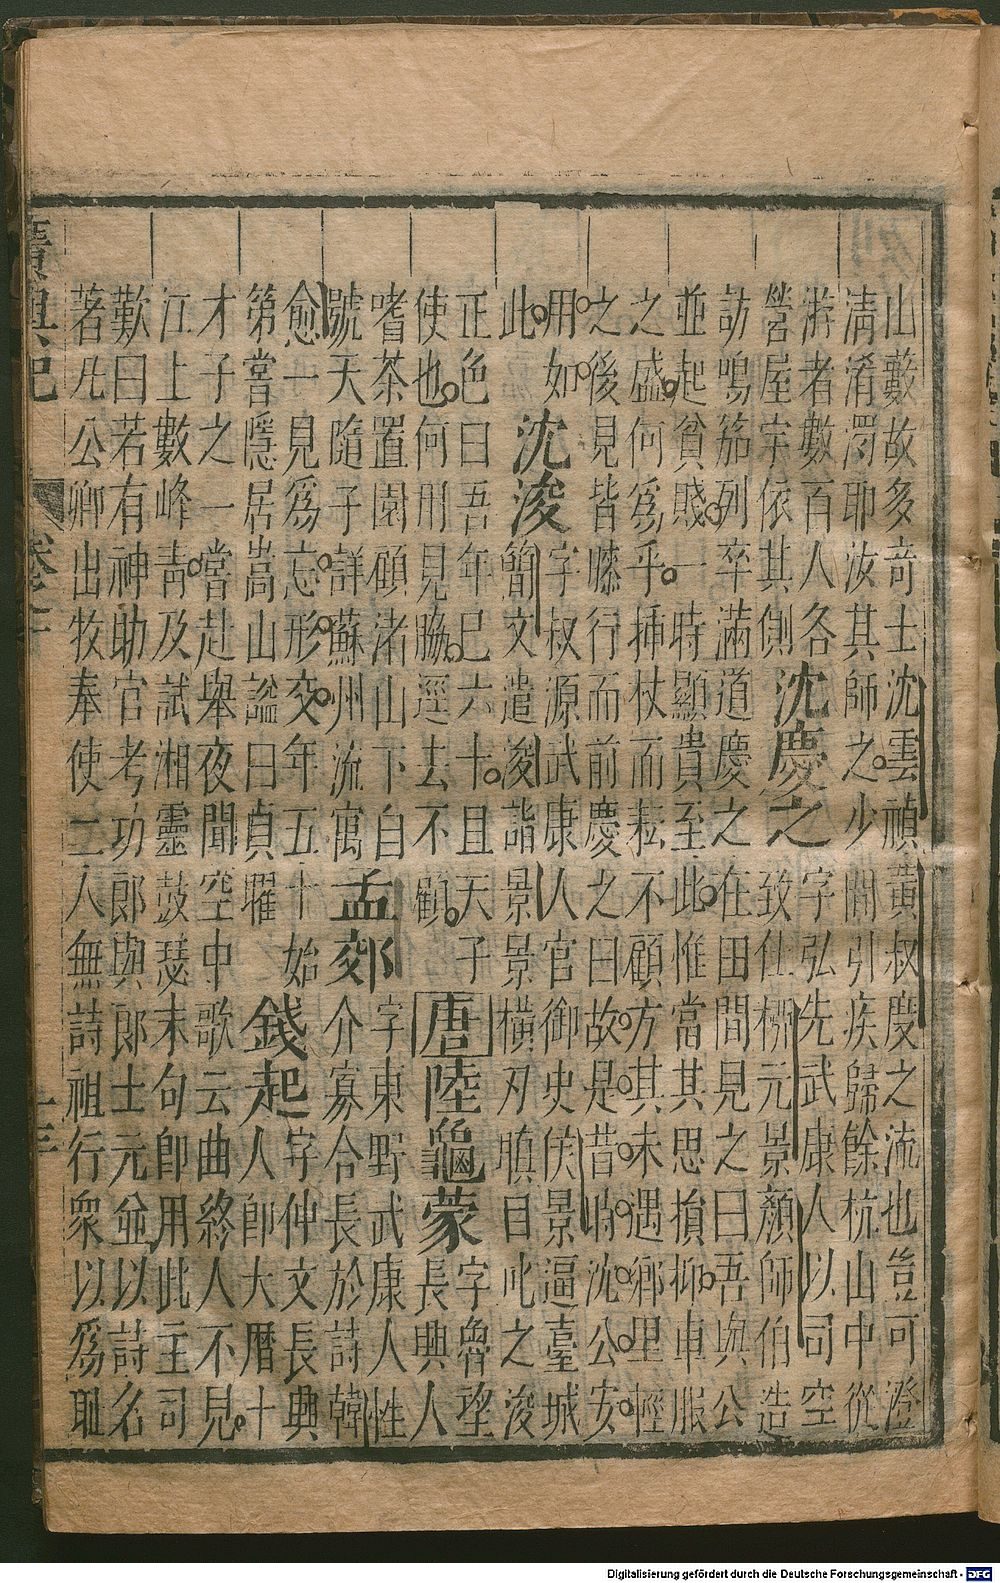 山藪故多奇士沈雲禎黃叔度之流也豈可澄
清淆濁耶汝其師之少閒引疾歸餘杭山中從
游者數百人各
營屋宇依其側
沈慶之
字弘先武康人以司空
致仕柳元景顏師伯造
訪鳴笳列卒滿道慶之在田間見之曰吾與公
並起貧賤一時顯貴至此惟當其思損抑車服
之盛何爲乎挿杖而耘不顧方其未遇鄉里輕
之後見皆膝行而前慶之曰故是昔時沈公安
用如
此
沈浚
字叔源武康人官御史侯景逼臺城
簡文遣浚詣景景橫刃瞋目叱之浚
正色曰吾年巳六十且天子
使也何刑見脇逕去不顧
唐陸龜蒙
字魯望
長興人
嗜茶置園顧渚山下自
號天隨子詳蘇州流寓
孟郊
字東野武康人性
介寡合長於詩韓
愈一見爲忘形交年五十始
第嘗隱居嵩山謚曰貞曜
錢起
字仲文長興
人郎大曆十
才子之一嘗赴舉夜聞空中歌云曲終人不見
江上數峰靑及試湘靈鼓瑟末句即用此主司
歎曰若有神助官考功郎與郎士元並以詩名
著凡公卿出牧奉使二人無詩祖行衆以爲耻
廣輿記
Digitalisierung gefördert durch die Deutsche Forschungsgemeinschaft - DFG